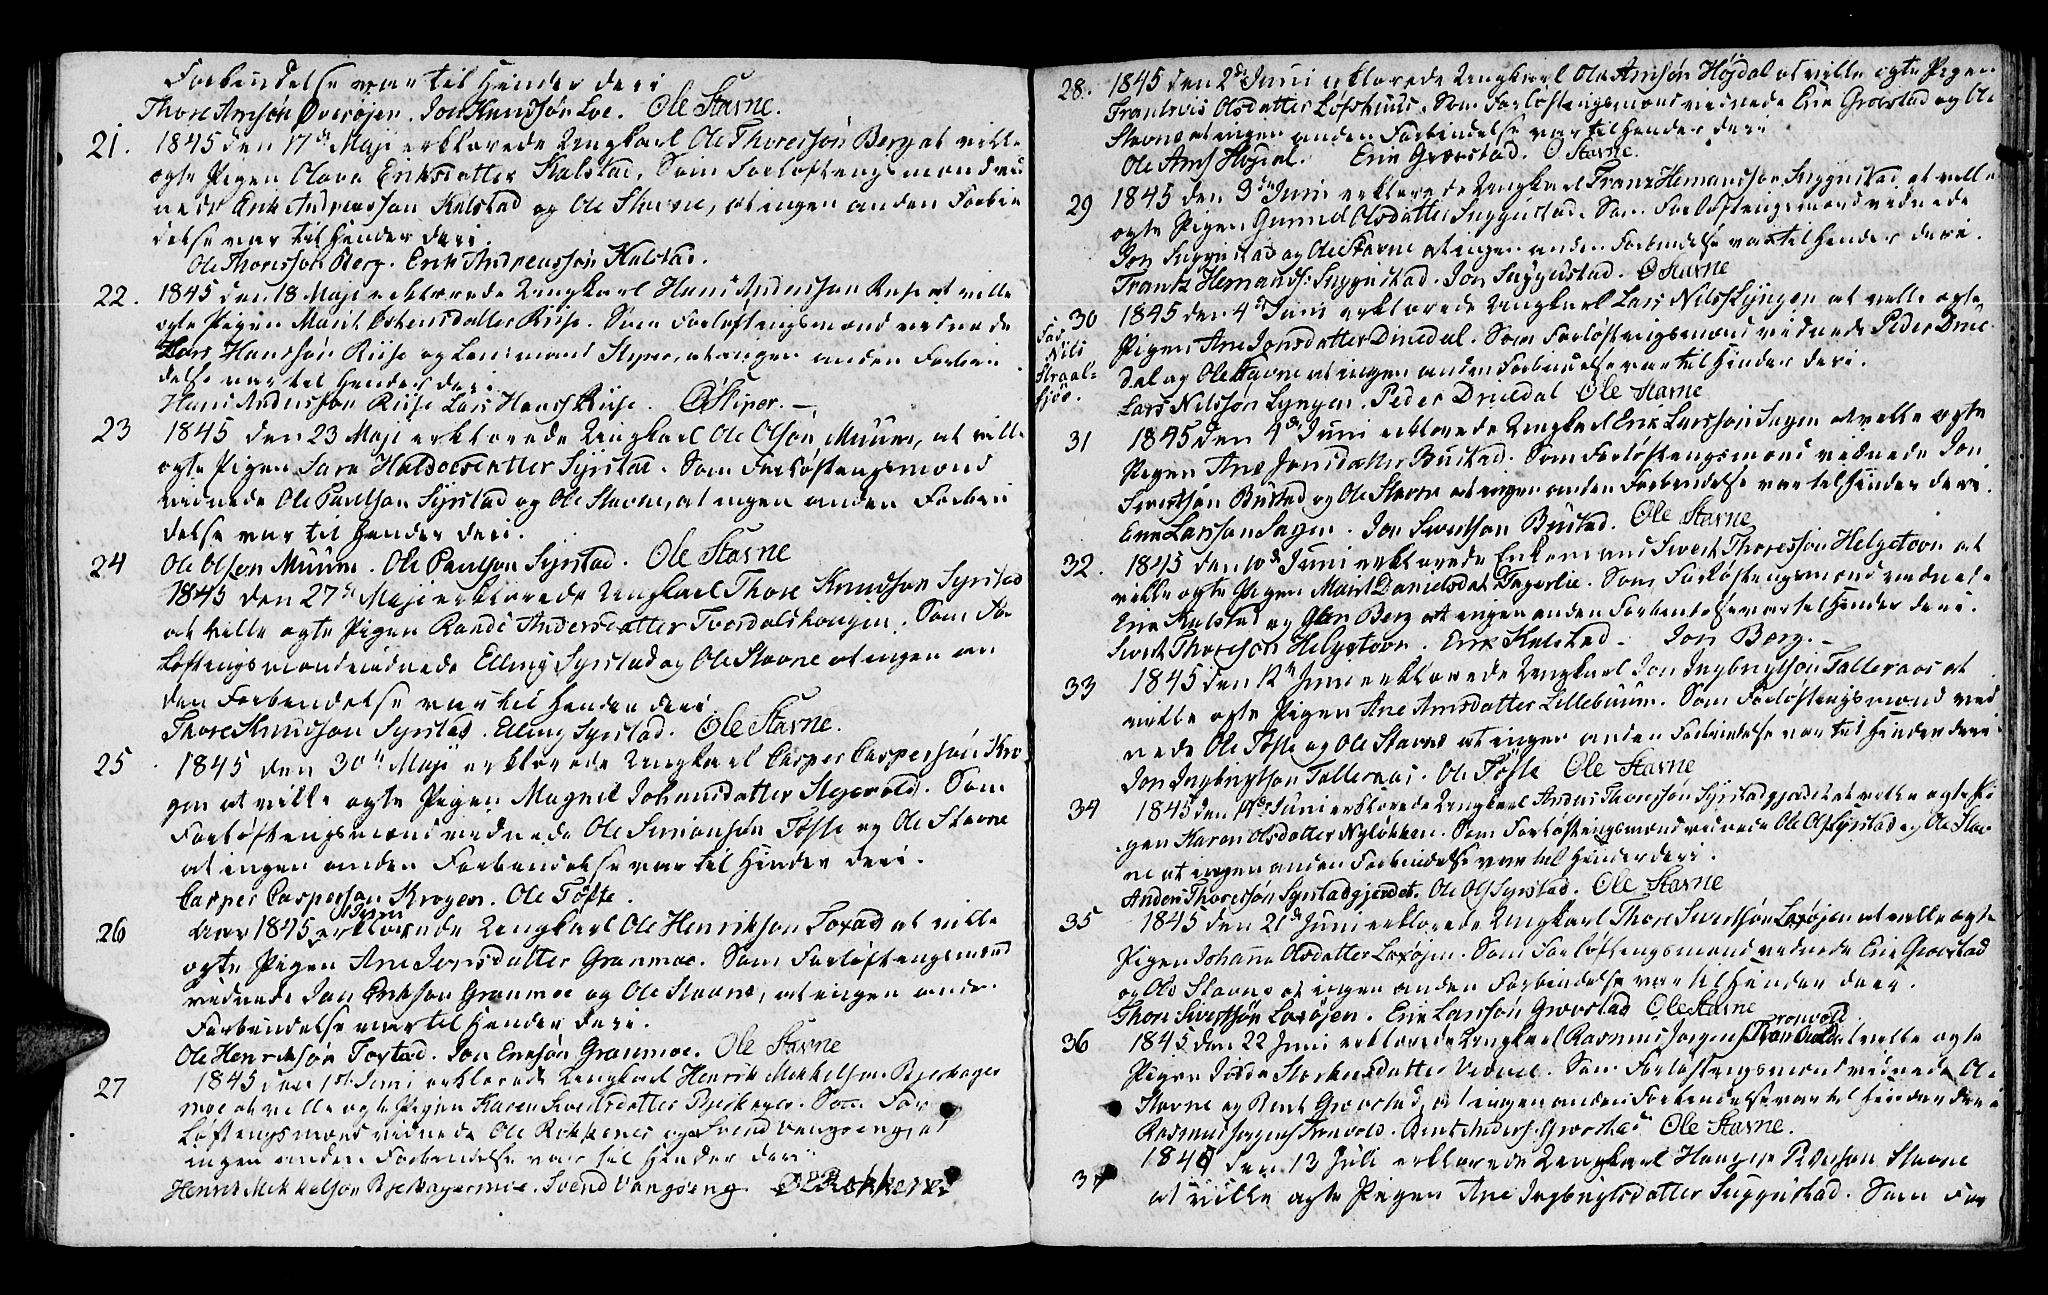 Forbindelse var til Hinder deri
Thore Arnsøn Oversøjen. Jon Knudsøn Loe. Ole Stavne.
21. 1845 den 17de Maji erklærede Ungkarl Ole Thoresøn Berg at ville
ægte Pigen Olava Eriksdatter Kalstad. Som Forlovtningsmænd vid
nede Erik Andreassøn Kalstad og Ole Stavne, at ingen anden Forbin
delse var til Hinder deri.
Ole Thoresson Berg. Erik Andreassøn Kalstad.
22. 1845 den 18 Maji erklærede Ungkarl Hans Andersson Riise at ville
ægte Pigen Marit Estensdatter Riise. Som Forløftingsmænd vidnede
Lars Hanssøn Riise og Lensmand Styner, at ingen anden Forbin
delse var til Hinder deri
Hans Andersson Riise Lars Hans Riise. O Stiner.
23 1845 den 23 Maji erklærede Ungkarl Ole Olsøn Muum, at ville
ægte Pigen Sara Haldorsdatter Syrstad. Som Forløftingsmænd
vidnede Ole Paulsøn Syrstad og Ole Stavne, at ingen anden Forbin
delse var til Hinder deri.
24 Ole Olsen Muum. Ole Paulsøn Syrstad. Ole Stavne
1845 den 27de Maji erklærede Ungkarl Thore Knudsøn Syrstad
at ville ægte Pigen Randi Andersdatter Tvordalshougen. Som For
løftingsmænd vidnede Elling Syrstad og Ole Stavne at ingen an
den Forbindelse var til Hinder deri.
Thore Knudsøn Syrstad. Elling Syrstad. Ole Stavne.
25 1845 den 30te Maji erklærede Ungkarl Casper Caspersøn Kro
gen at ville ægte Pigen Magnil Johansdatter Stejevold. Som
Forløftingsmænd vidnede Ole Simonsøn Tøfte og Ole Stavne
at ingen anden Forbindelse var til Hinder deri.
Casper Caspersøn Krogen. Ole Tøfte.
26 Aar 1845 1 Juni erklærede Ungkarl Ole Henrikson Foxad at ville
ægte Pigen Ane Jonsdatter Granmoe. Som Forløftingsmænd
vidnede Jon Erikson Granmoe og Ole Stavne, at ingen anden
Forbindelse var til Hinder deri.
Ole Henriksøn Foxtad. Jon Eriksøn Granmoe. Ole Stavne
27 1845 den 1ste Juni erklærede Ungkarl Henrik Mikkelsen Bjerkager
moe at ville ægte Pigen Karen Sivertsdatter Som For
løftingsmænd vidnede Ole Rokkenes og Svend Vangseng, at
ingen anden Forbindelse var til Hinder deri
Henrik Mikkelsøn Bjerkagermoe. Svend Vangseng. Ole Rokkenes
28. 1845 den 2de Juni erklærede Ungkarl Ole Arnsøn Højdal at ville ægte Pigen
Olsdatter Lofshuus. Som Forløftingsmænd vidnede Erik Grovstad og Ole
Stavne at ingen anden Forbindelse var til Hinder deri
Ole Arns Højdal. Erik Grovstad. O Stavne.
29 1845 den 3die Juni erklærede Ungkarl Frantz Hemandsøn Snyggustad at ville
ægte Pigen Gunnil Olsdatter Snyggustad. Som Forløftingsmænd vidnede
Jon Snyggustad og Ole Stavne at ingen anden Forbindelse var til Hinder deri.
Frantz Hemands: Snyggustad. Jon Snyggustad. O Stavne
30 1845 den 4de Juni erklærede Ungkarl Lars Nilss Lyngen at ville ægte
Pigen Ane Jonsdatter Driedal. Som Forløftingsmænd vidnede Peder Drie
dal og Ole Stavne at ingen anden Forbindelse var til Hinder deri.
Lars Nilssøn Lyngen. Peder Driedal Ole Stavne
Fad
Nils
Straal-
sjøe.
31 1845 den 4de Juni erklærede Ungkarl Erik Larssøn Sagen at ville ægte
Pigen Ane Jonsdatter Bustad. Som Forløftingsmænd vidnede Jon
Sivertsøn Bustad og Ole Stavne at ingen anden Forbindelse var til Hinder deri.
Erik Larssøn Sagen. Jon Sivertsøn Bustad. Ole Stavne
32. 1845 den 10de Juni erklærede Enkemand Sivert Thoressøn Helgetovn at
ville ægte Pigen Marit Danielsdat. Fagerlie. Som Forløftingsmænd vidnede
Erik Kalstad og Jon Berg at ingen anden Forbindelse var til Hinder deri.
Sivert Thoresøn Helgetovn. Erik Kalstad - Jon Berg. -
33 1845 den 12te Juni erklærede Ungkarl Jon Ingbrigtsøn Talleraas at
ville ægte Pigen Ane Arnsdatter Lillebuum. Som Forløftingsmænd vid
nede Ole Tøfte og Ole Stavne at ingen anden Forbindelse var til Hinder deri
Jon Ingbrigtsøn Talleraas. Ole Tøfte Ole Stavne
34 1845 den 14de Juni erklærede Ungkarl Anders Thoresøn Syrstadgjerdet at ville ægte Pi
gen Karen Olsdatter Nyløkken. Som Forløftingsmænd vidnede Ole Ols Syrstad og Ole Stav
ne at ingen anden Forbindelse var til Hinder deri.
Anders Thoresøn Syrstadgjerdet. Ole Ols Syrstad. Ole Stavne
35 1845 den 21de Juni erklærede Ungkarl Thore Sivertsøn Loxøjen at ville ægte
Pigen Johanna Olsdatter Loxøjen. Som Forløftingsmænd vidnede Erik Grovstad
og Ole Stavne at ingen anden Forbindelse var til Hinder deri.
Thore Sivertsøn Loxøjen. Erik Larssøn Grovstad Ole Stavne
36 1845 den 22 Juni erklærede Ungkarl Rasmus Jørgens Tronvold at ville ægte
Pigen Storkersdatter Som Forløftingsmænd vidnede Ole
Stavne og Bent Grovstad, at ingen anden Forbindelse var til Hinder deri
Rasmus Jørgens Tronvold. Bent Anders. Grovstad Ole Stavne.
37 1845 den 13 Juli erklærede Ungkarl Stavne
at ville ægte Pigen Ane Ingbrigtsdatter Snyggustad. Som For